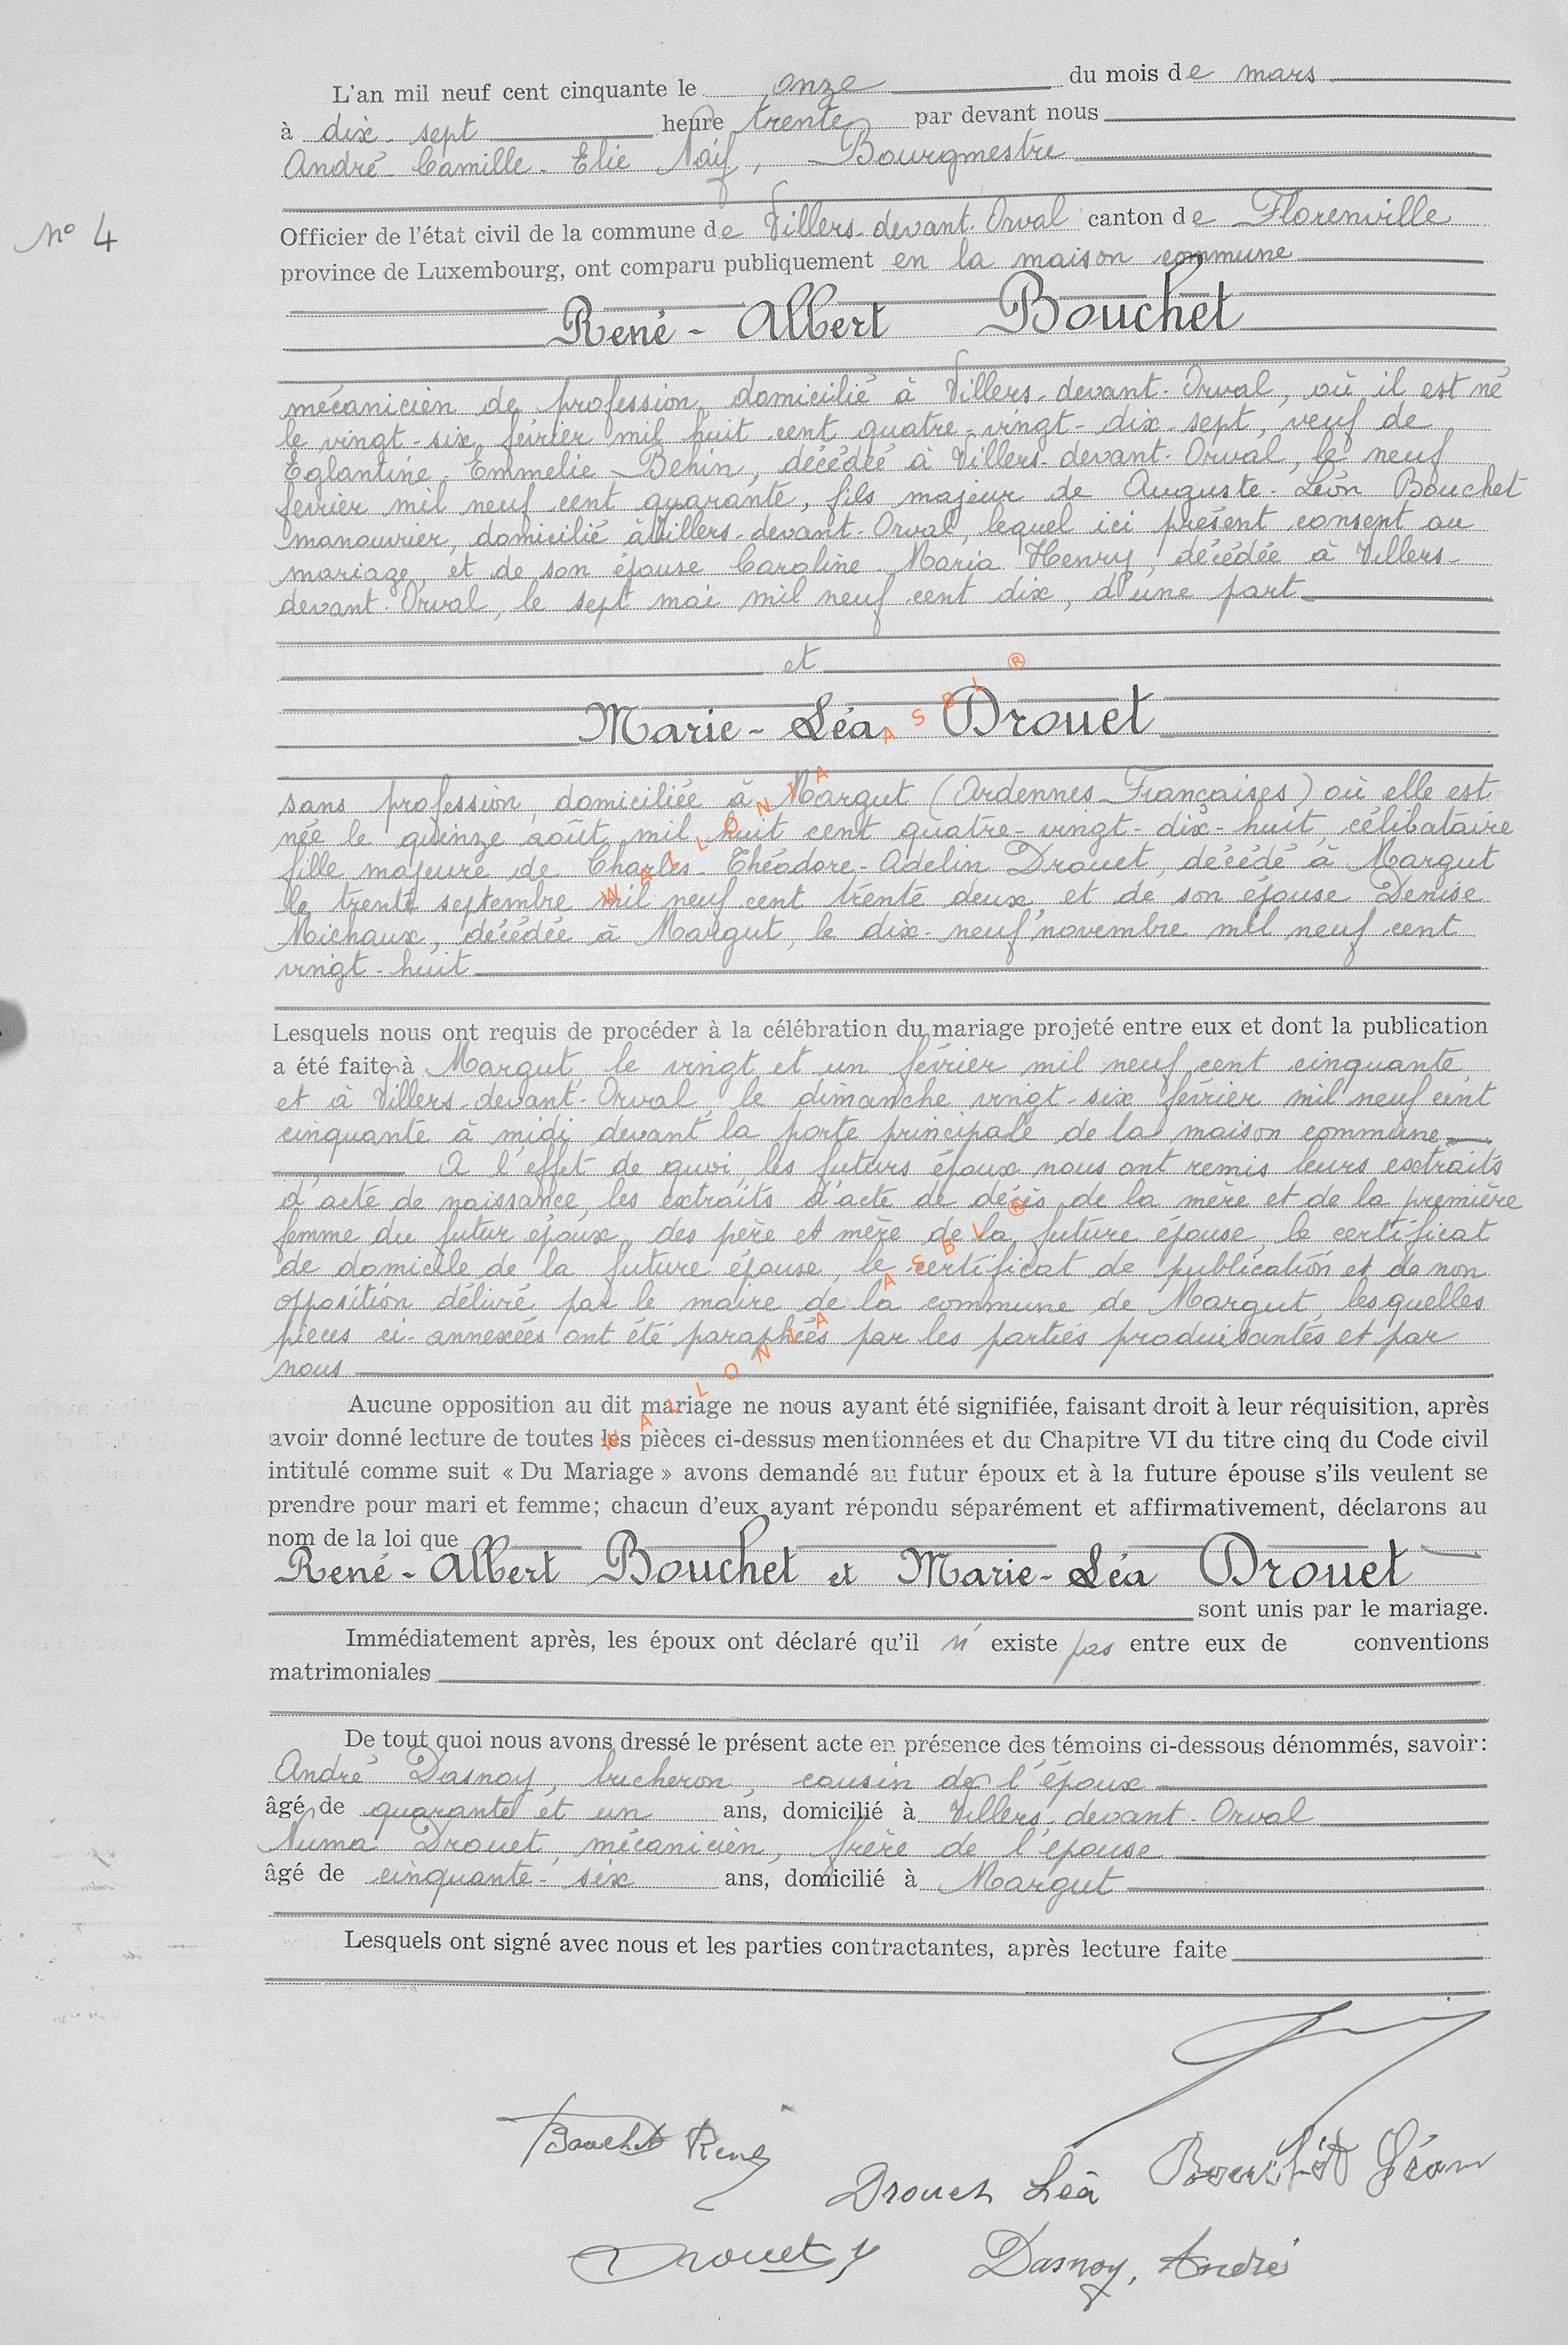 L'an mil neuf cent cinquante le onze du mois de mars
à dix-sept heure trente par devant nous
André-Camille-Elie Naif, Bourgmestre
N° 4
Officier de l'état civil de la commune de Villers-devant-Orval canton de Florenville
province de Luxembourg, ont comparu publiquement en la maison commune
René-Albert Bouchet
mécanicien de profession, domicilié à Villers-devant-Orval, où il est né
le vingt-six février mil huit cent quatre-vingt-dix-sept, veuf de
Eglantine-Emmelie Behin, décédée à Villers-devant-Orval, le neuf
fevrier mil neuf cent quarante, fils majeur de Auguste-Léon Bouchet
manouvrier, domicilié à Villers-devant-Orval, lequel ici présent consent au
mariage, et de son épouse Caroline-Maria Henry, décédée à Villers-
devant-Orval, le sept mai mil neuf cent dix, d'une part
et
Marie-Léa Drouet
sans profession, domiciliée à Margut (Ardennes Françaises) où elle est
née le quinze août mil huit cent quatre-vingt-dix-huit, célibataire
fille majeure de Charles-Théodore-Adelin Drouet, décédé à Margut
le trente septembre mil neuf cent trente deux, et de son épouse Denise
Michaux, décédée à Margut, le dix-neuf novembre mil neuf cent
vingt-huit
Lesquels nous ont requis de procéder à la célébration du mariage projeté entre eux et dont la publication
a été faite à Margut, le vingt et un février mil neuf cent cinquante,
et à Villers-devant-Orval, le dimanche vingt-six février mil neuf cent
cinquante à midi devant la porte principale de la maison commune
A l'effet de quoi, les futurs époux nous ont remis leurs extraits
d'acte de naissance, les extraits d'acte de décès de la mère et de la première
femme du futur époux, des père et mère de la future épouse, le certificat
de domicile de la future épouse, le certificat de publication et de non
opposition délivré par le maire de la commune de Margut, lesquelles
pièces ci-annexées ont été paraphées par les parties produisantes et par
nous
Aucune opposition au dit mariage ne nous ayant été signifiée, faisant droit à leur réquisition, après
avoir donné lecture de toutes les pièces ci-dessus mentionnées et du Chapitre VI du titre cinq du Code civil
intitulé comme suit « Du Mariage » avons demandé au futur époux et à la future épouse s'ils veulent se
prendre pour mari et femme; chacun d'eux ayant répondu séparément et affirmativement, déclarons au
nom de la loi que
René-Albert Bouchet et Marie-Léa Drouet
sont unis par le mariage.
Immédiatement après, les époux ont déclaré qu'il n' existe pas entre eux de conventions
matrimoniales
De tout quoi nous avons dressé le présent acte en présence des témoins ci-dessous dénommés, savoir:
André Dasnoy, bucheron, cousin de l'époux
âgé de quarante et un ans, domicilié à Villers-devant-Orval
Numa Drouet, mécanicien, frère de l'épouse
âgé de cinquante-six ans, domicilié à Margut
Lesquels ont signé avec nous et les parties contractantes, après lecture faite
Bouchet René
Drouet Léa Bouchet Léon
Drouet Dasnoy, André
WALLONIA ASBL ®
WALLONIA ASBL ®